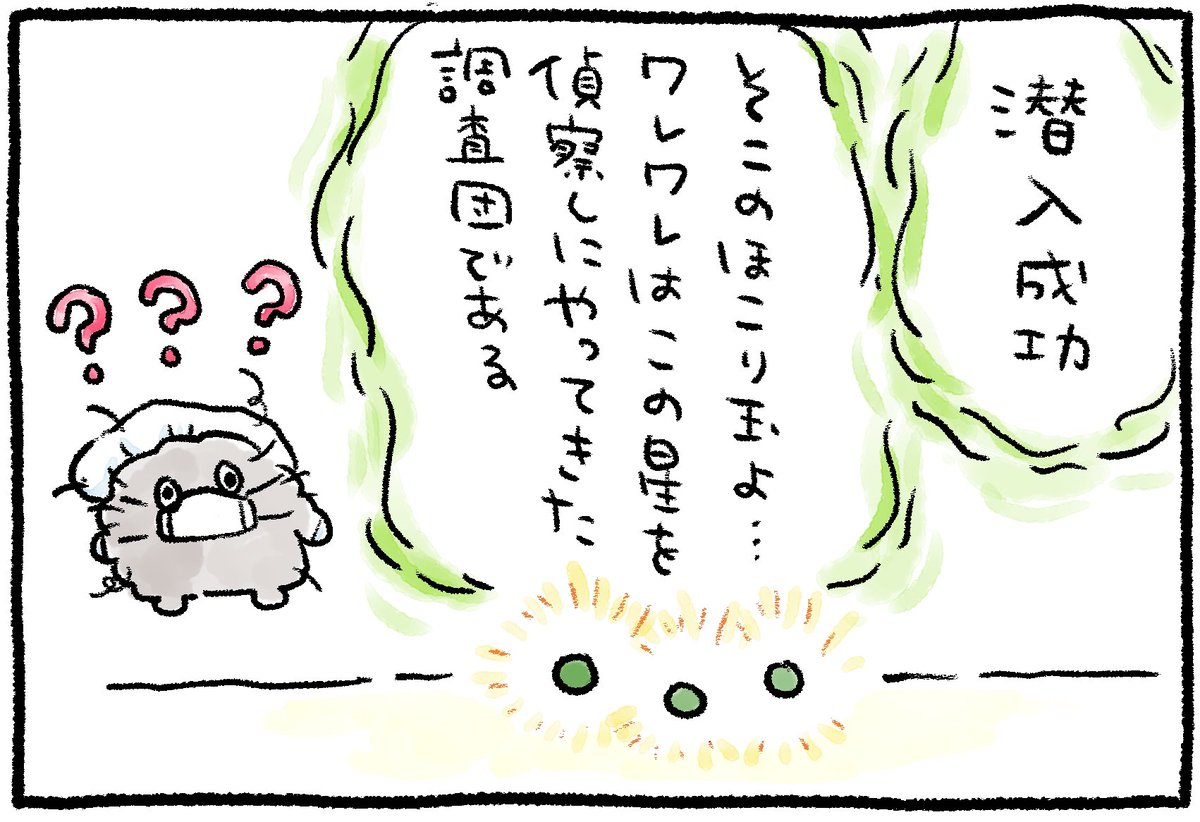 潜入成功
そこのほこり玉よ…
ワレワレはこの星を
偵察しにやってきた
調査団である
???